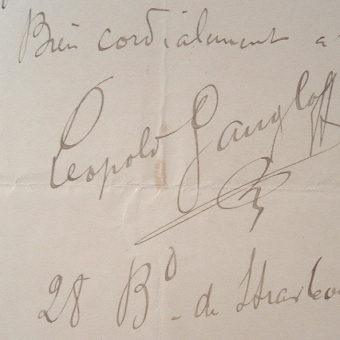 Bien cordialement a
Leopold Gangloff
28 Bd - de Strasbou